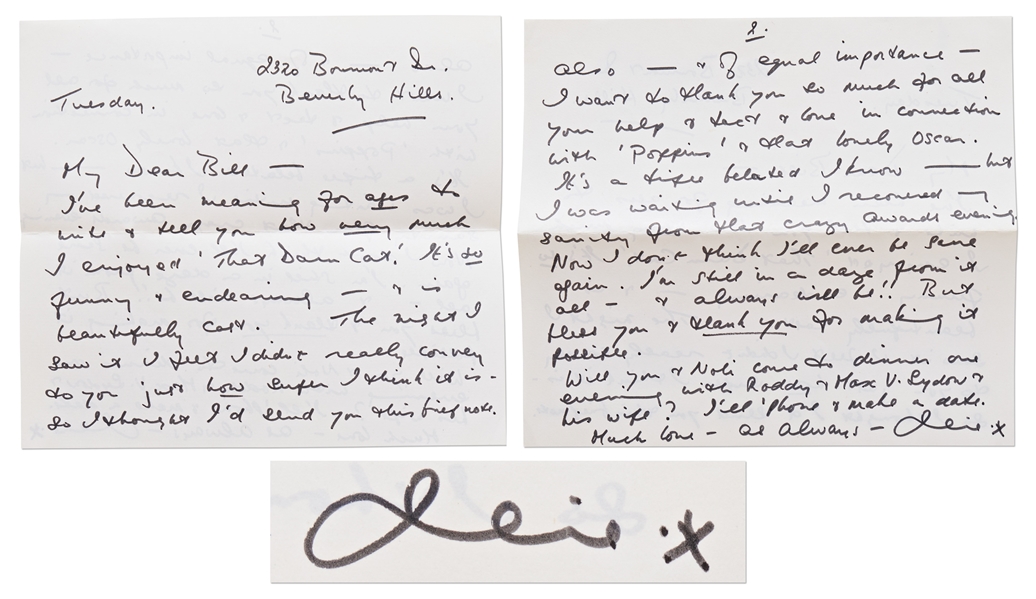 2320 Bowmont Dr.
Beverly Hills.
Tuesday.
My Dear Bill —
I've been meaning for ages to
write & tell you how very much
I enjoyed 'That Darn Cat'. It's so
funny & endearing — & is
beautifully cast. The night I
saw it I felt I didn't really convey
to you just how super I think it is -
so I thought I'd send you this brief note.
2.
also — & of equal importance —
I want to thank you so much for all
your help & tact & love in connection
with 'Poppins' & that lovely Oscar.
It's a trifle belated I know — but
I was waiting until I recovered —
sanity from that crazy Awards evening.
Now I don't think I'll ever be sane
again. I'm still in a daze from it
all — & always will be!! But
bless you & thank you for making it
possible.
Will you & Noli come to dinner one
evening with Roddy & Max V. Sydow &
his wife? I'll 'phone & make a date.
Much love - as always -